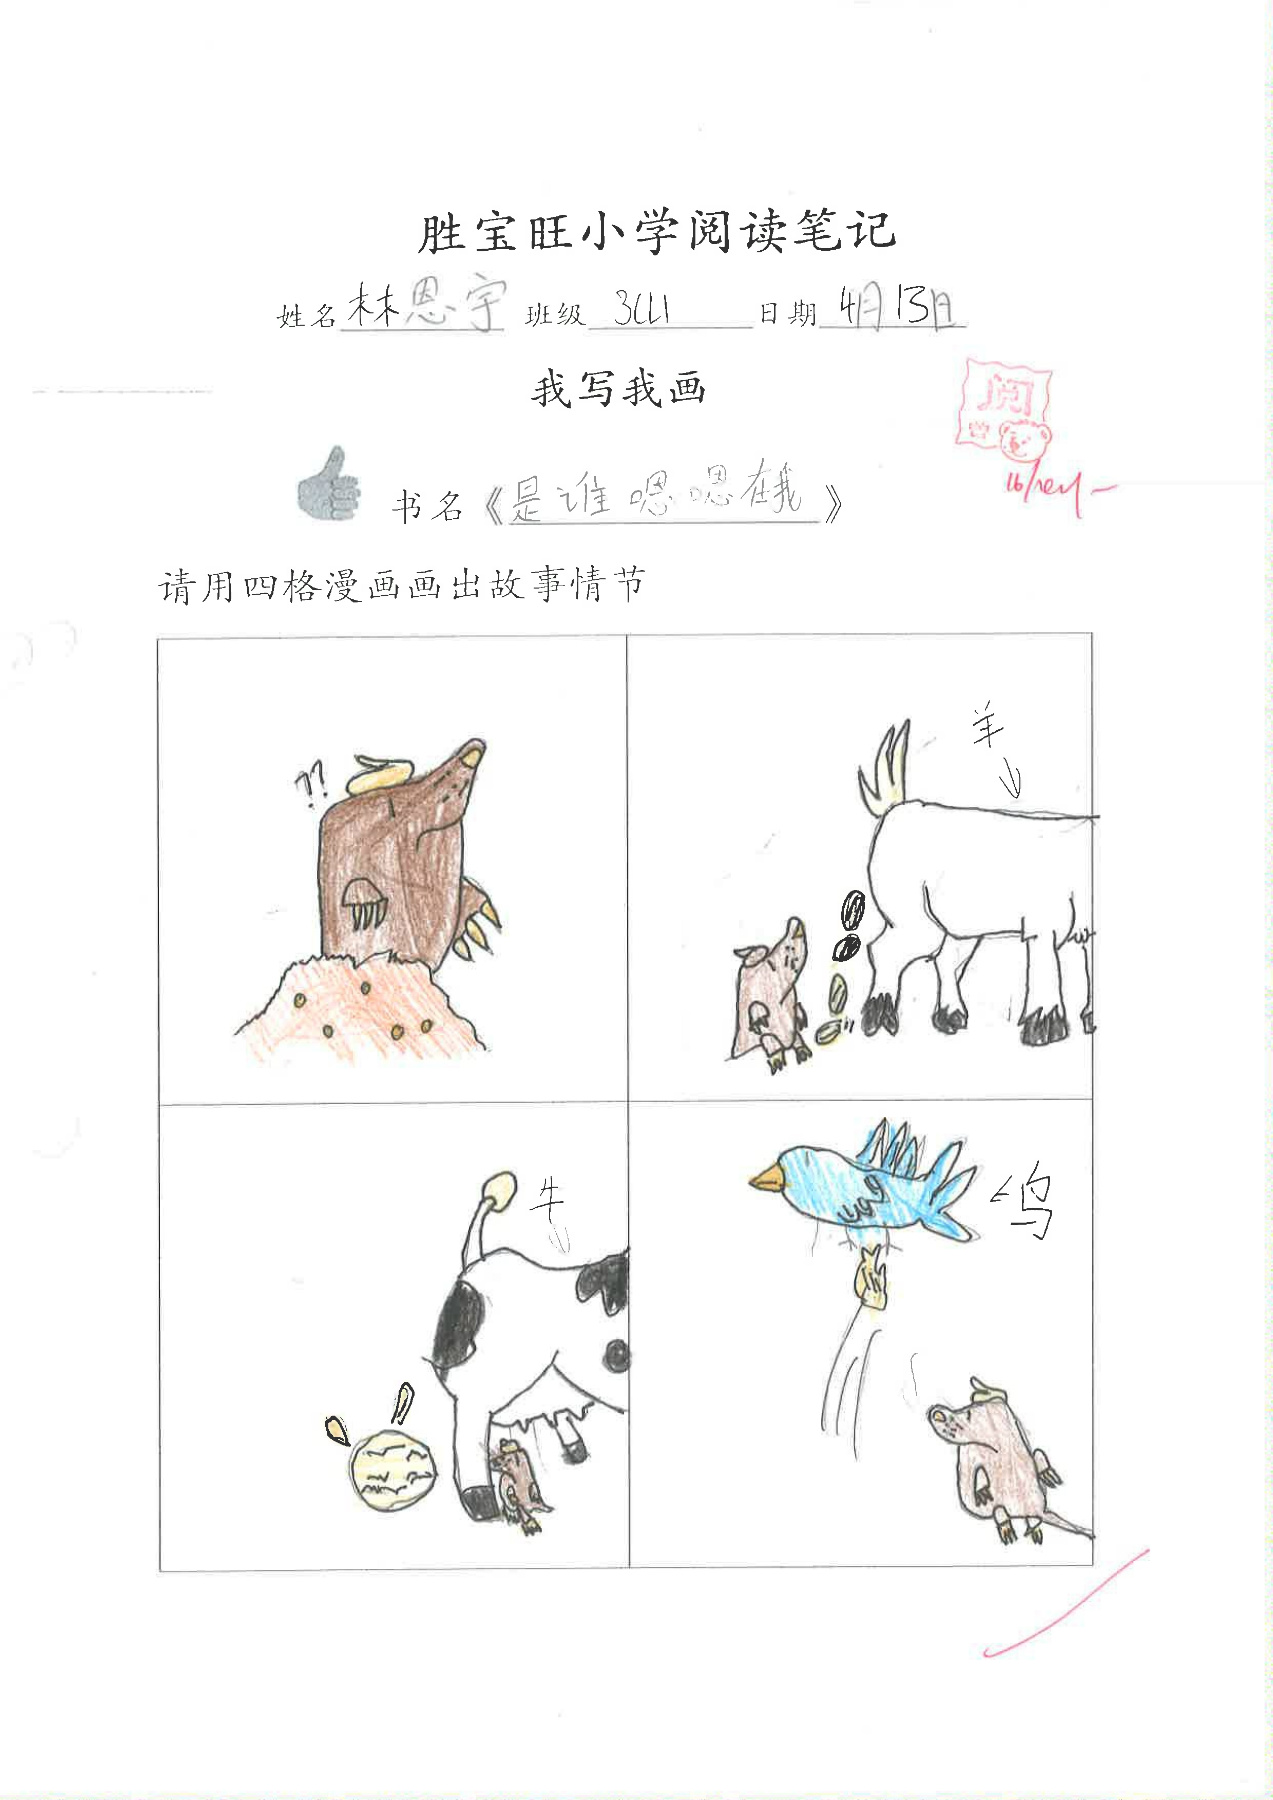 胜宝旺小学阅读笔记
姓名 林恩宇 班级 3C山 日期 4月13日
我写我画
阅
书名《是谁嗯嗯在我》
请用四格漫画画出故事情节
??
羊
牛
鸟